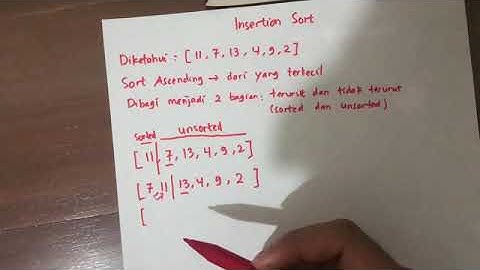 Insertion Sort
Diketahui : [ 11, 7, 13, 4, 9, 2 ]
Sort Ascending → dari yang terkecil
Dibagi menjadi 2 bagian : terurut dan tidak terurut
(sorted dan unsorted)
sorted unsorted
[ 11 | 7, 13, 4, 9, 2 ]
[ 7, 11 | 13, 4, 9, 2 ]
[